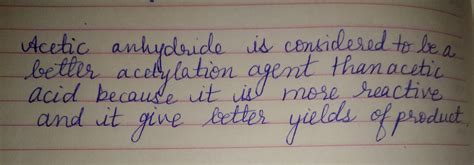 Acetic anhydride is considered to be a
better acetylation agent than acetic
acid because it is more reactive
and it give better yields of product.